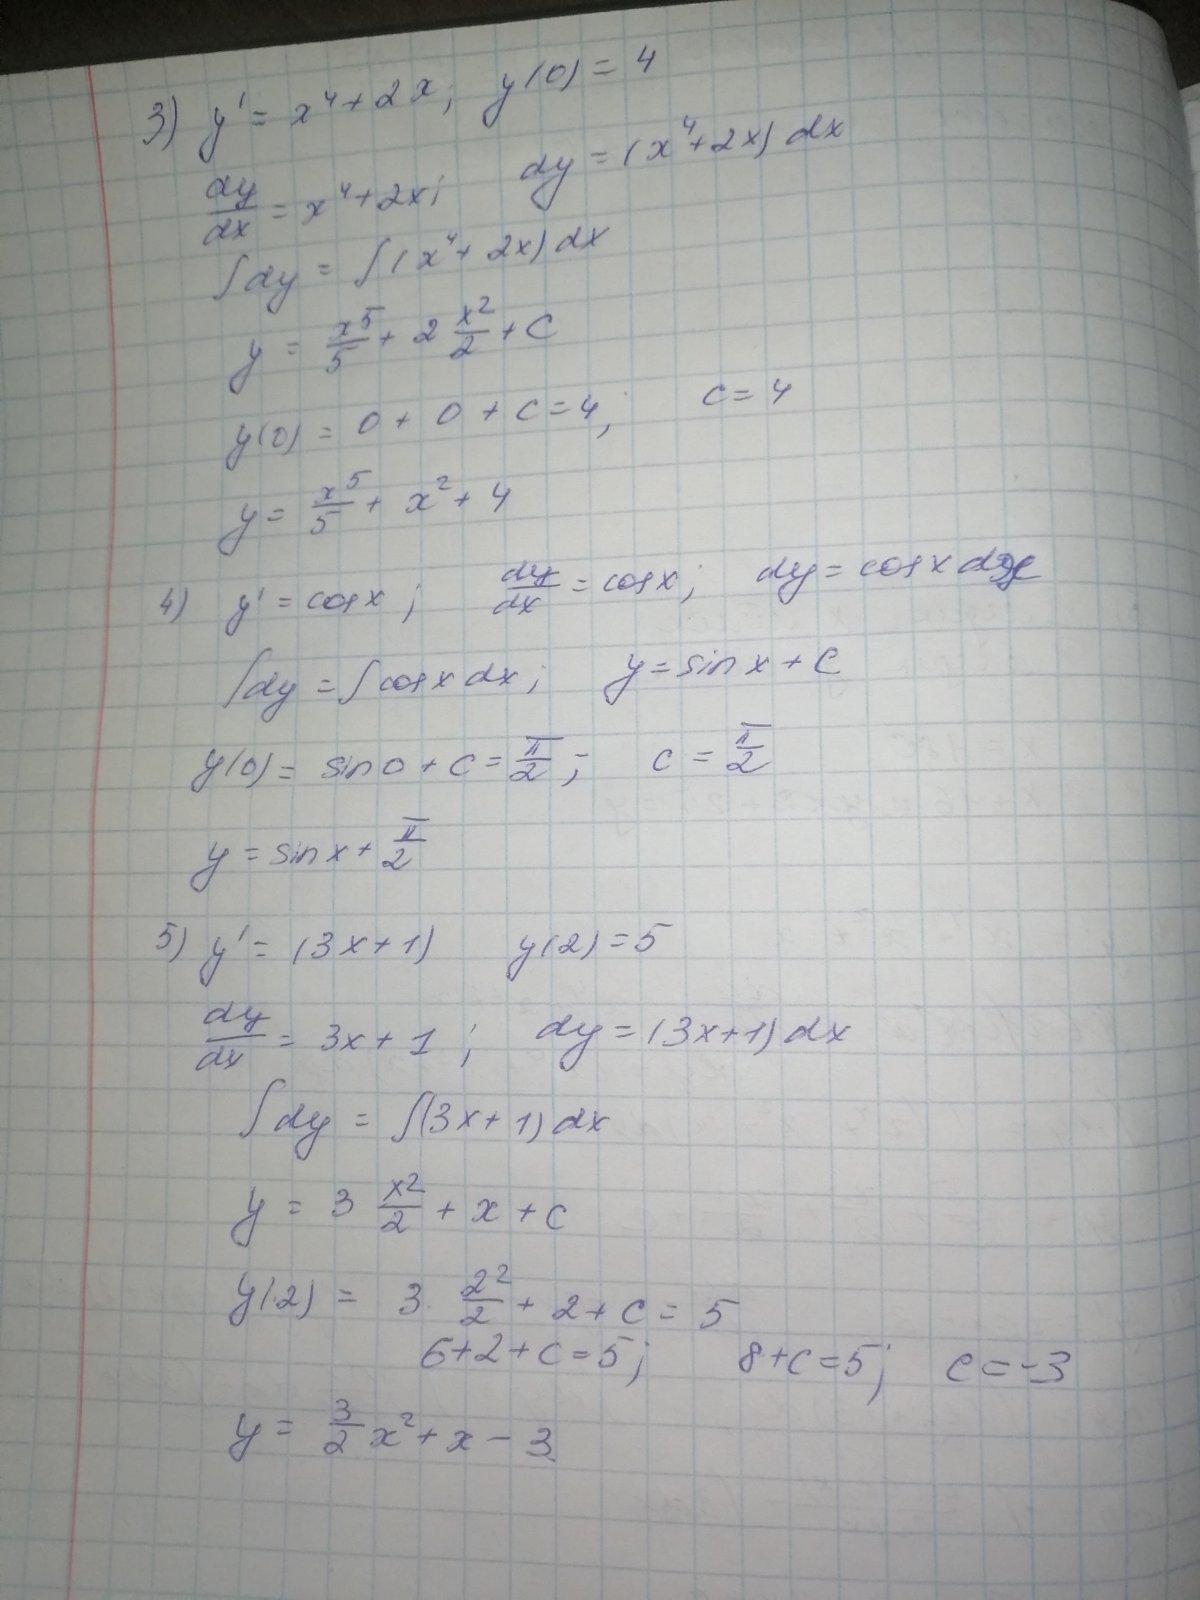 3) y' = x⁴ + 2x; y(0) = 4
dy/dx = x⁴ + 2x; dy = (x⁴ + 2x) dx
∫dy = ∫(x⁴ + 2x) dx
y = x⁵/5 + 2 x²/2 + C
y(0) = 0 + 0 + C = 4; C = 4
y = x⁵/5 + x² + 4
4) y' = cosx; dy/dx = cosx; dy = cosx dx
∫dy = ∫cosx dx; y = sinx + C
y(0) = sin0 + C = π/2; C = π/2
y = sinx + π/2
5) y' = (3x+1) y(2) = 5
dy/dx = 3x + 1; dy = (3x+1) dx
∫dy = ∫(3x+1) dx
y = 3 x²/2 + x + C
y(2) = 3 · 2²/2 + 2 + C = 5
6+2+C=5; 8+C=5; C=-3
y = 3/2 x² + x - 3